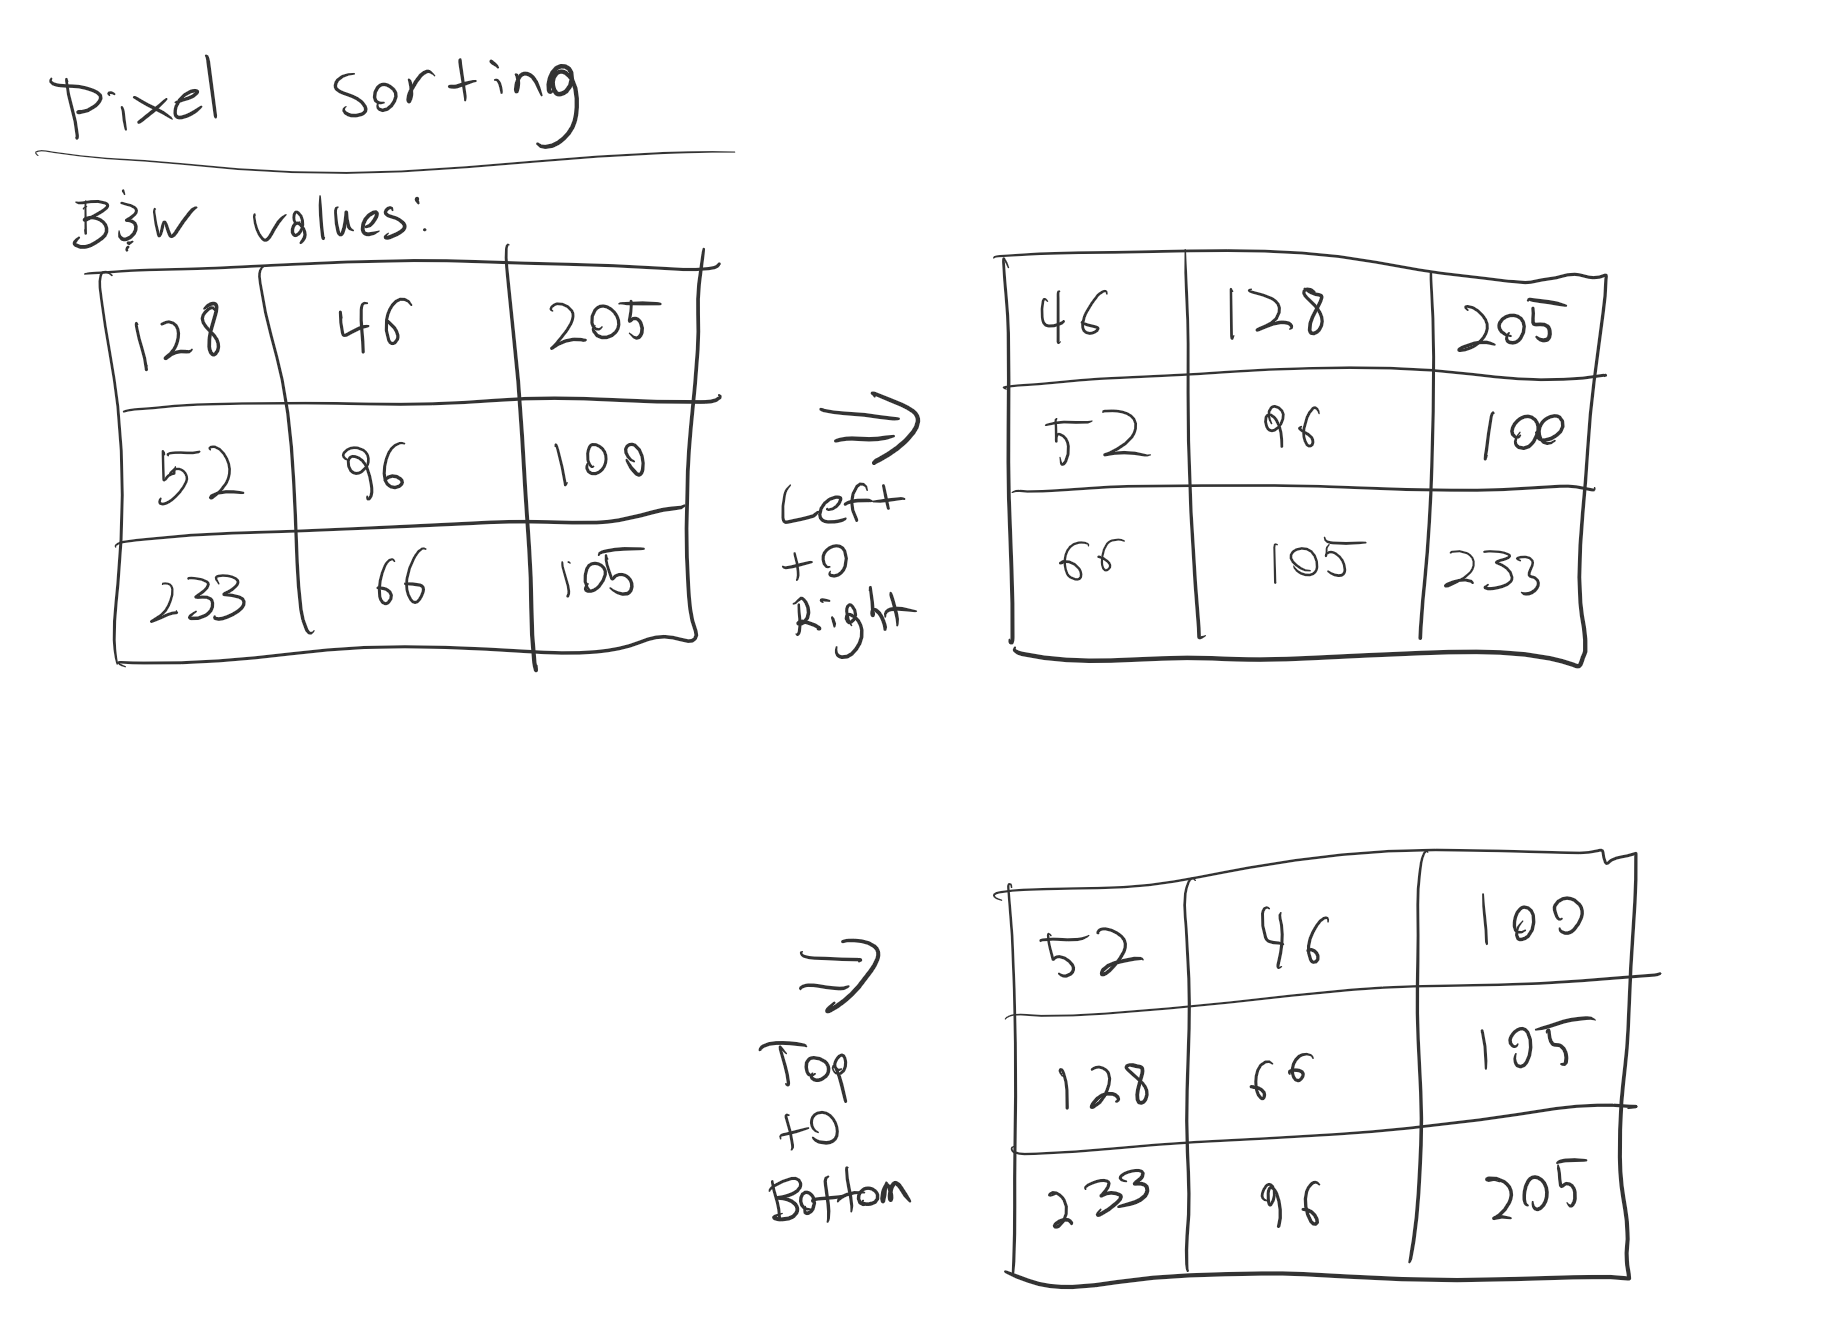 Pixel sorting
B&W values:
128 46 205
52 96 100
233 66 105
Left
to
Right
46 128 205
52 96 100
66 105 233
Top
to
Bottom
52 46 100
128 66 105
233 96 205